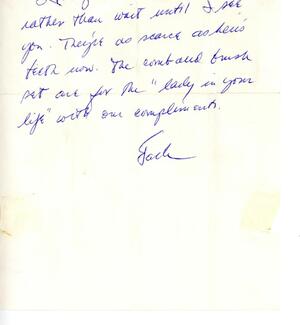 rather than wait until I see
you. They're as scarce as hens
teeth now. The comb and brush
set are for the "lady in your
life" with our complements.
Jack